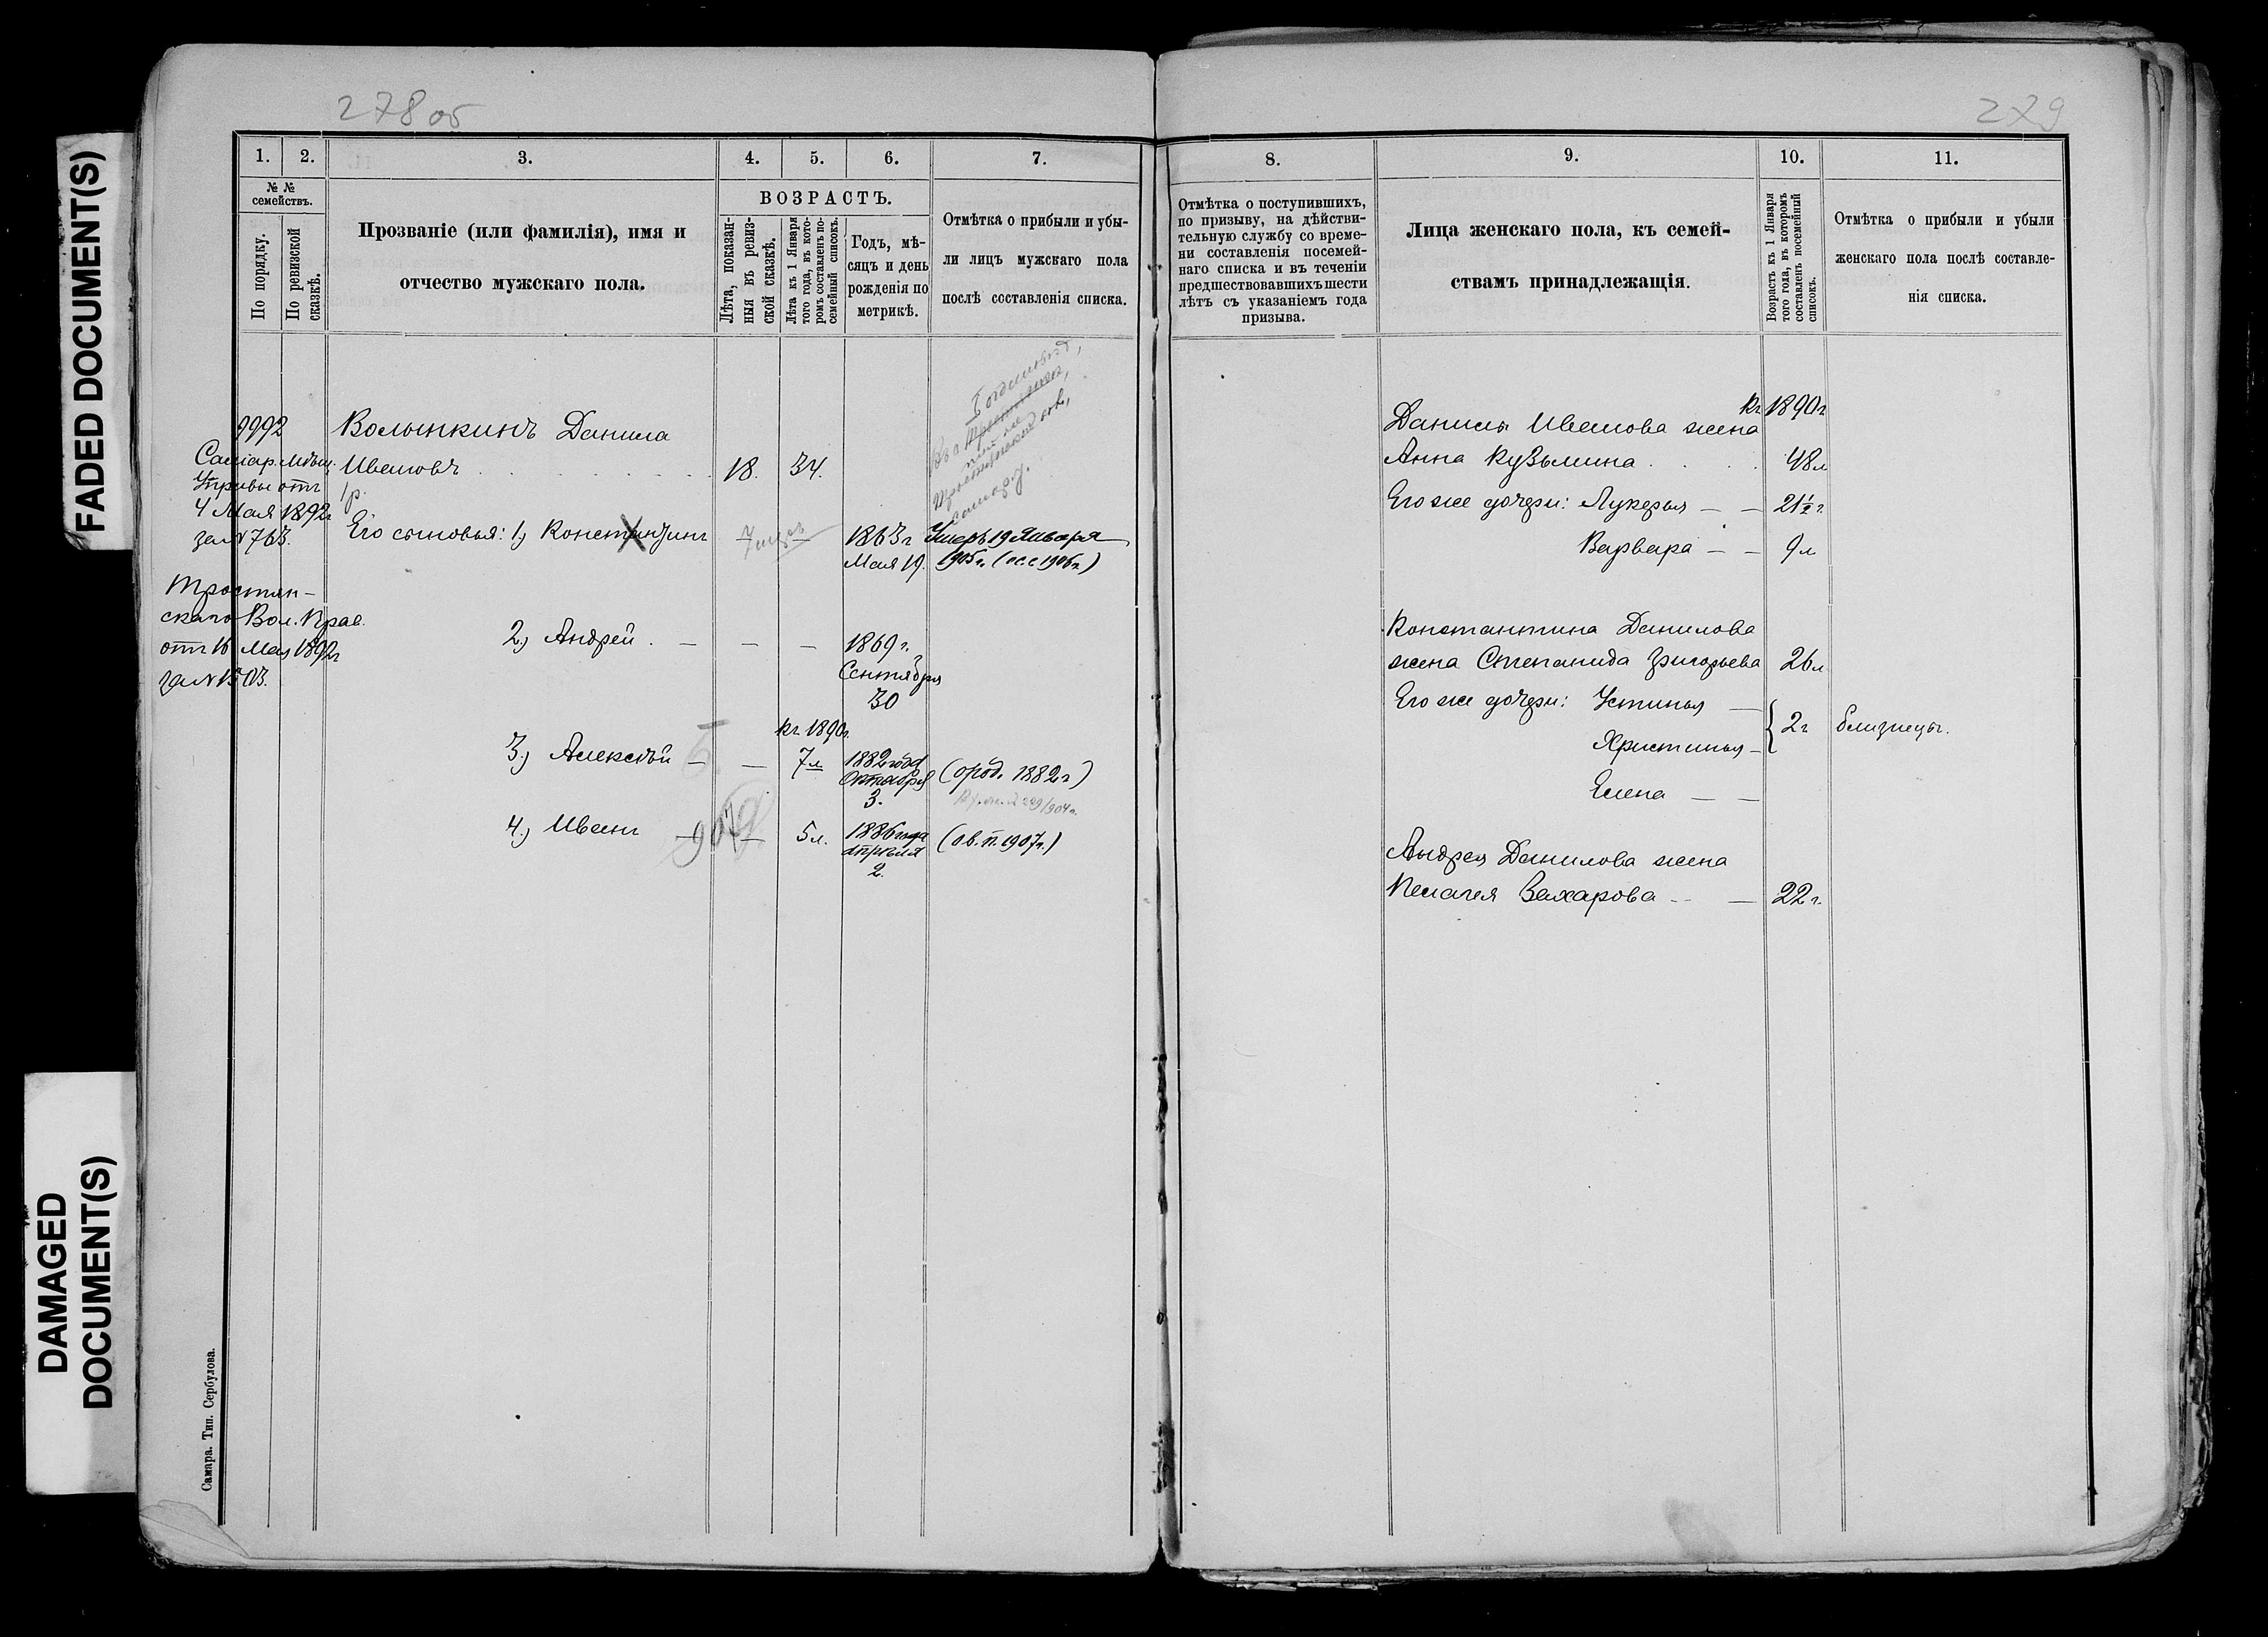 FADED DOCUMENT(S)
DAMAGED
DOCUMENT(S)
278 об
1. 2. 3. 4. 5. 6. 7.
№ №
семействъ.
По порядку.
По ревизской
сказкѣ.
Прозваніе (или фамилія), имя и
отчество мужскаго пола.
ВОЗРАСТЪ.
Лѣта, показан-
ныя въ ревиз-
ской сказкѣ.
Лѣта къ 1 Января
того года, въ кото-
ромъ составленъ по-
семейный списокъ.
Годъ, мѣ-
сяцъ и день
рожденія по
метрикѣ.
Отмѣтка о прибыли и убы-
ли лицъ мужскаго пола
послѣ составленія списка.
9992
Самар. Мѣщ.
Управы отъ
4 Мая 1892г
за №763.
Тростян-
скаго Вол. Прав.
отъ 16 Мая 1892г
за №1503.
Волынкинъ Данила
Ивановъ 18. 34.
1р.
Его сыновья: 1) Константинъ
1863г
Мая 19.
Умеръ 19 Января
1905г. (ос. с 1906г.)
2) Андрей . — — —
1869г.
Сентября
30
къ 1890г.
3) Алексѣй — — 7л
1882 года
Октября
3.
(ород. 1882г)
4) Иванъ 907 5л.
1886 года
Апрѣля
2.
(ов. п. 1907г.)
Самара. Тип. Сербулова.
279
8. 9. 10. 11.
Отмѣтка о поступившихъ,
по призыву, на дѣйстви-
тельную службу со време-
ни составленія посемей-
наго списка и въ теченіи
предшествовавшихъ шести
лѣтъ съ указаніемъ года
призыва.
Лица женскаго пола, къ семей-
ствамъ принадлежащія.
Возрастъ къ 1 Января
того года, въ которомъ
составленъ посемейный
списокъ.
Отмѣтка о прибыли и убыли
женскаго пола послѣ составле-
нія списка.
къ 1890г
Данилы Иванова жена
Анна Кузьмина . . . 48л
Его же дочери: Лукерья — — 21½г.
Варвара — — 9л
Константина Данилова
жена Степанида Григорьева 26л
Его же дочери: Устинья —
Христинья — 2г близнецы.
Елена — —
Андрея Данилова жена
Пелагея Захарова — — 22г.